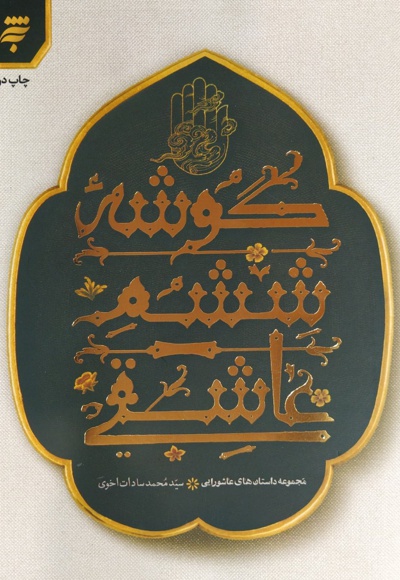 چاپ دو
گوشهٔ
ششم
عاشقی
مجموعه داستان‌های عاشورایی * سیّد محمد سادات اخوی